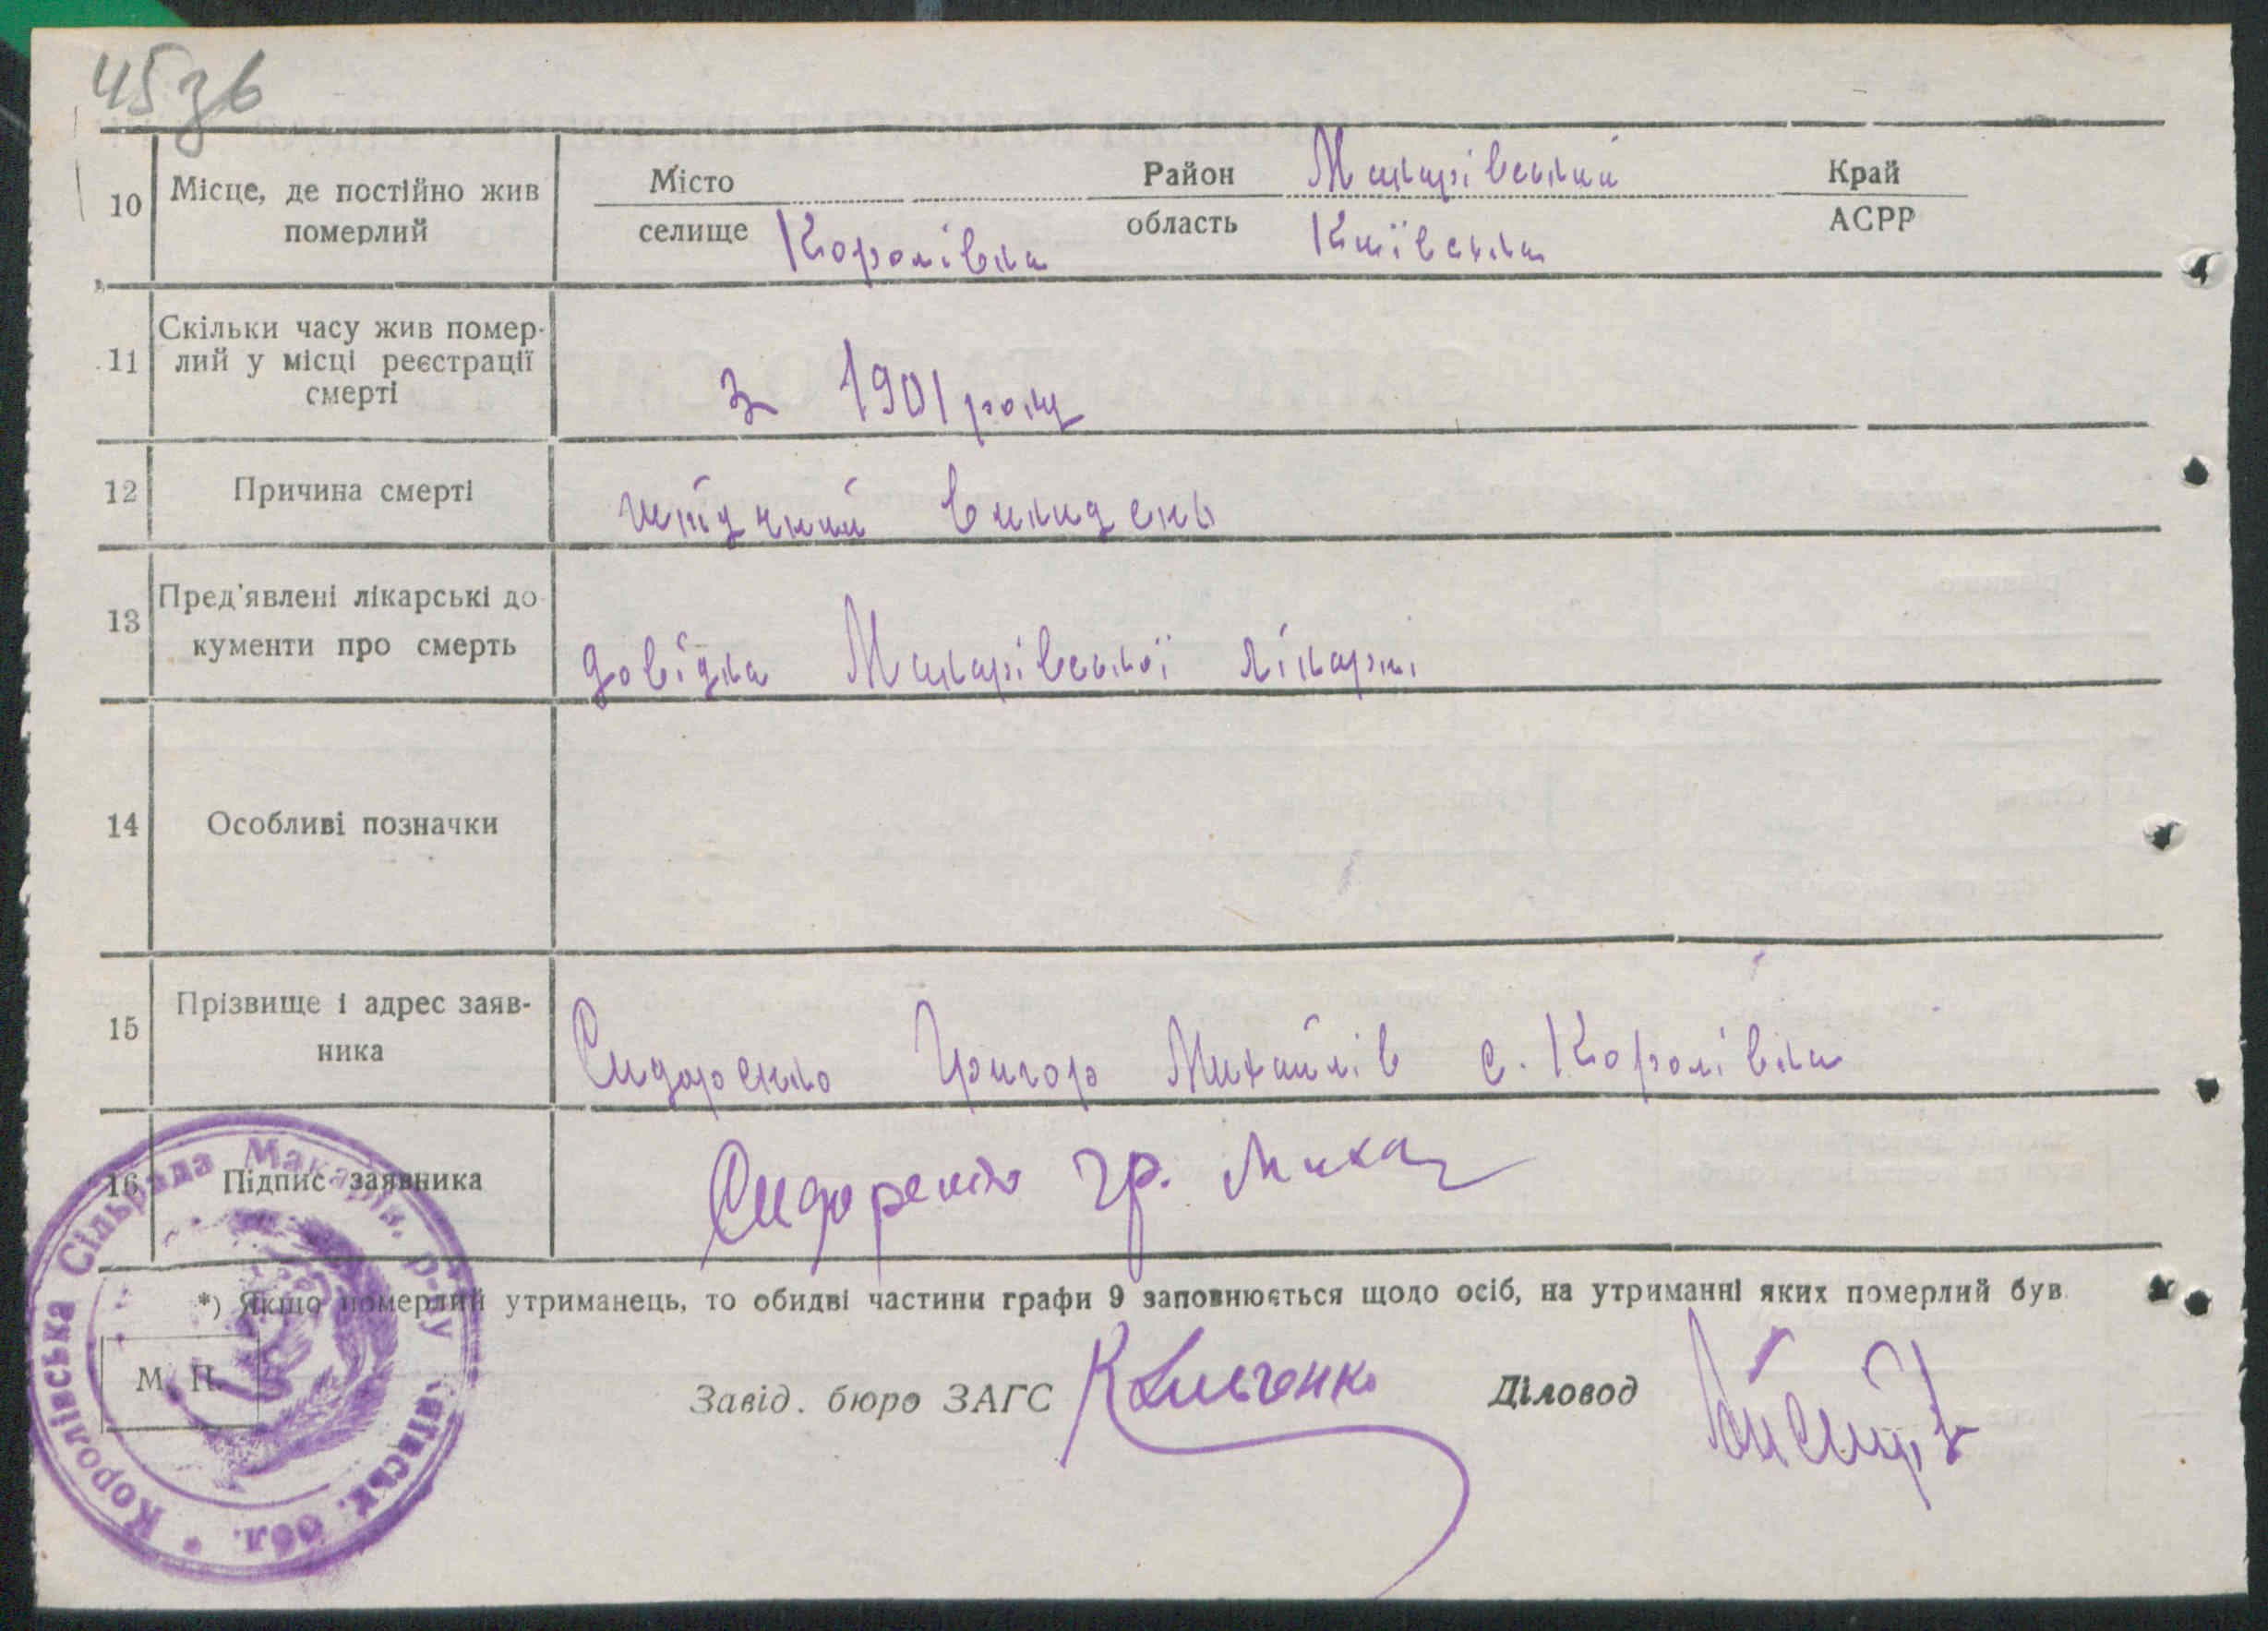 45зв
10 Місце, де постійно жив померлий
Місто Район Макарівський Край
селище Королівка область Київська АСРР
11 Скільки часу жив помер-
лий у місці реєстрації
смерті
з 1901 року
12 Причина смерті
викидень
13 Пред'явлені лікарські до-
кументи про смерть
довідка Макарівської лікарні
14 Особливі позначки
15 Прізвище і адрес заяв-
ника
Сидоренко Григор Михайлів с. Королівка
16 Підпис заявника Сидоренко Гр. Миха
*) Якщо померлий утриманець, то обидві частини графи 9 заповнюється щодо осіб, на утриманні яких померлий був
М. П.
Завід. бюро ЗАГС Діловод
Королівська Сільрада Макарів. р-ну Київськ. Обл.